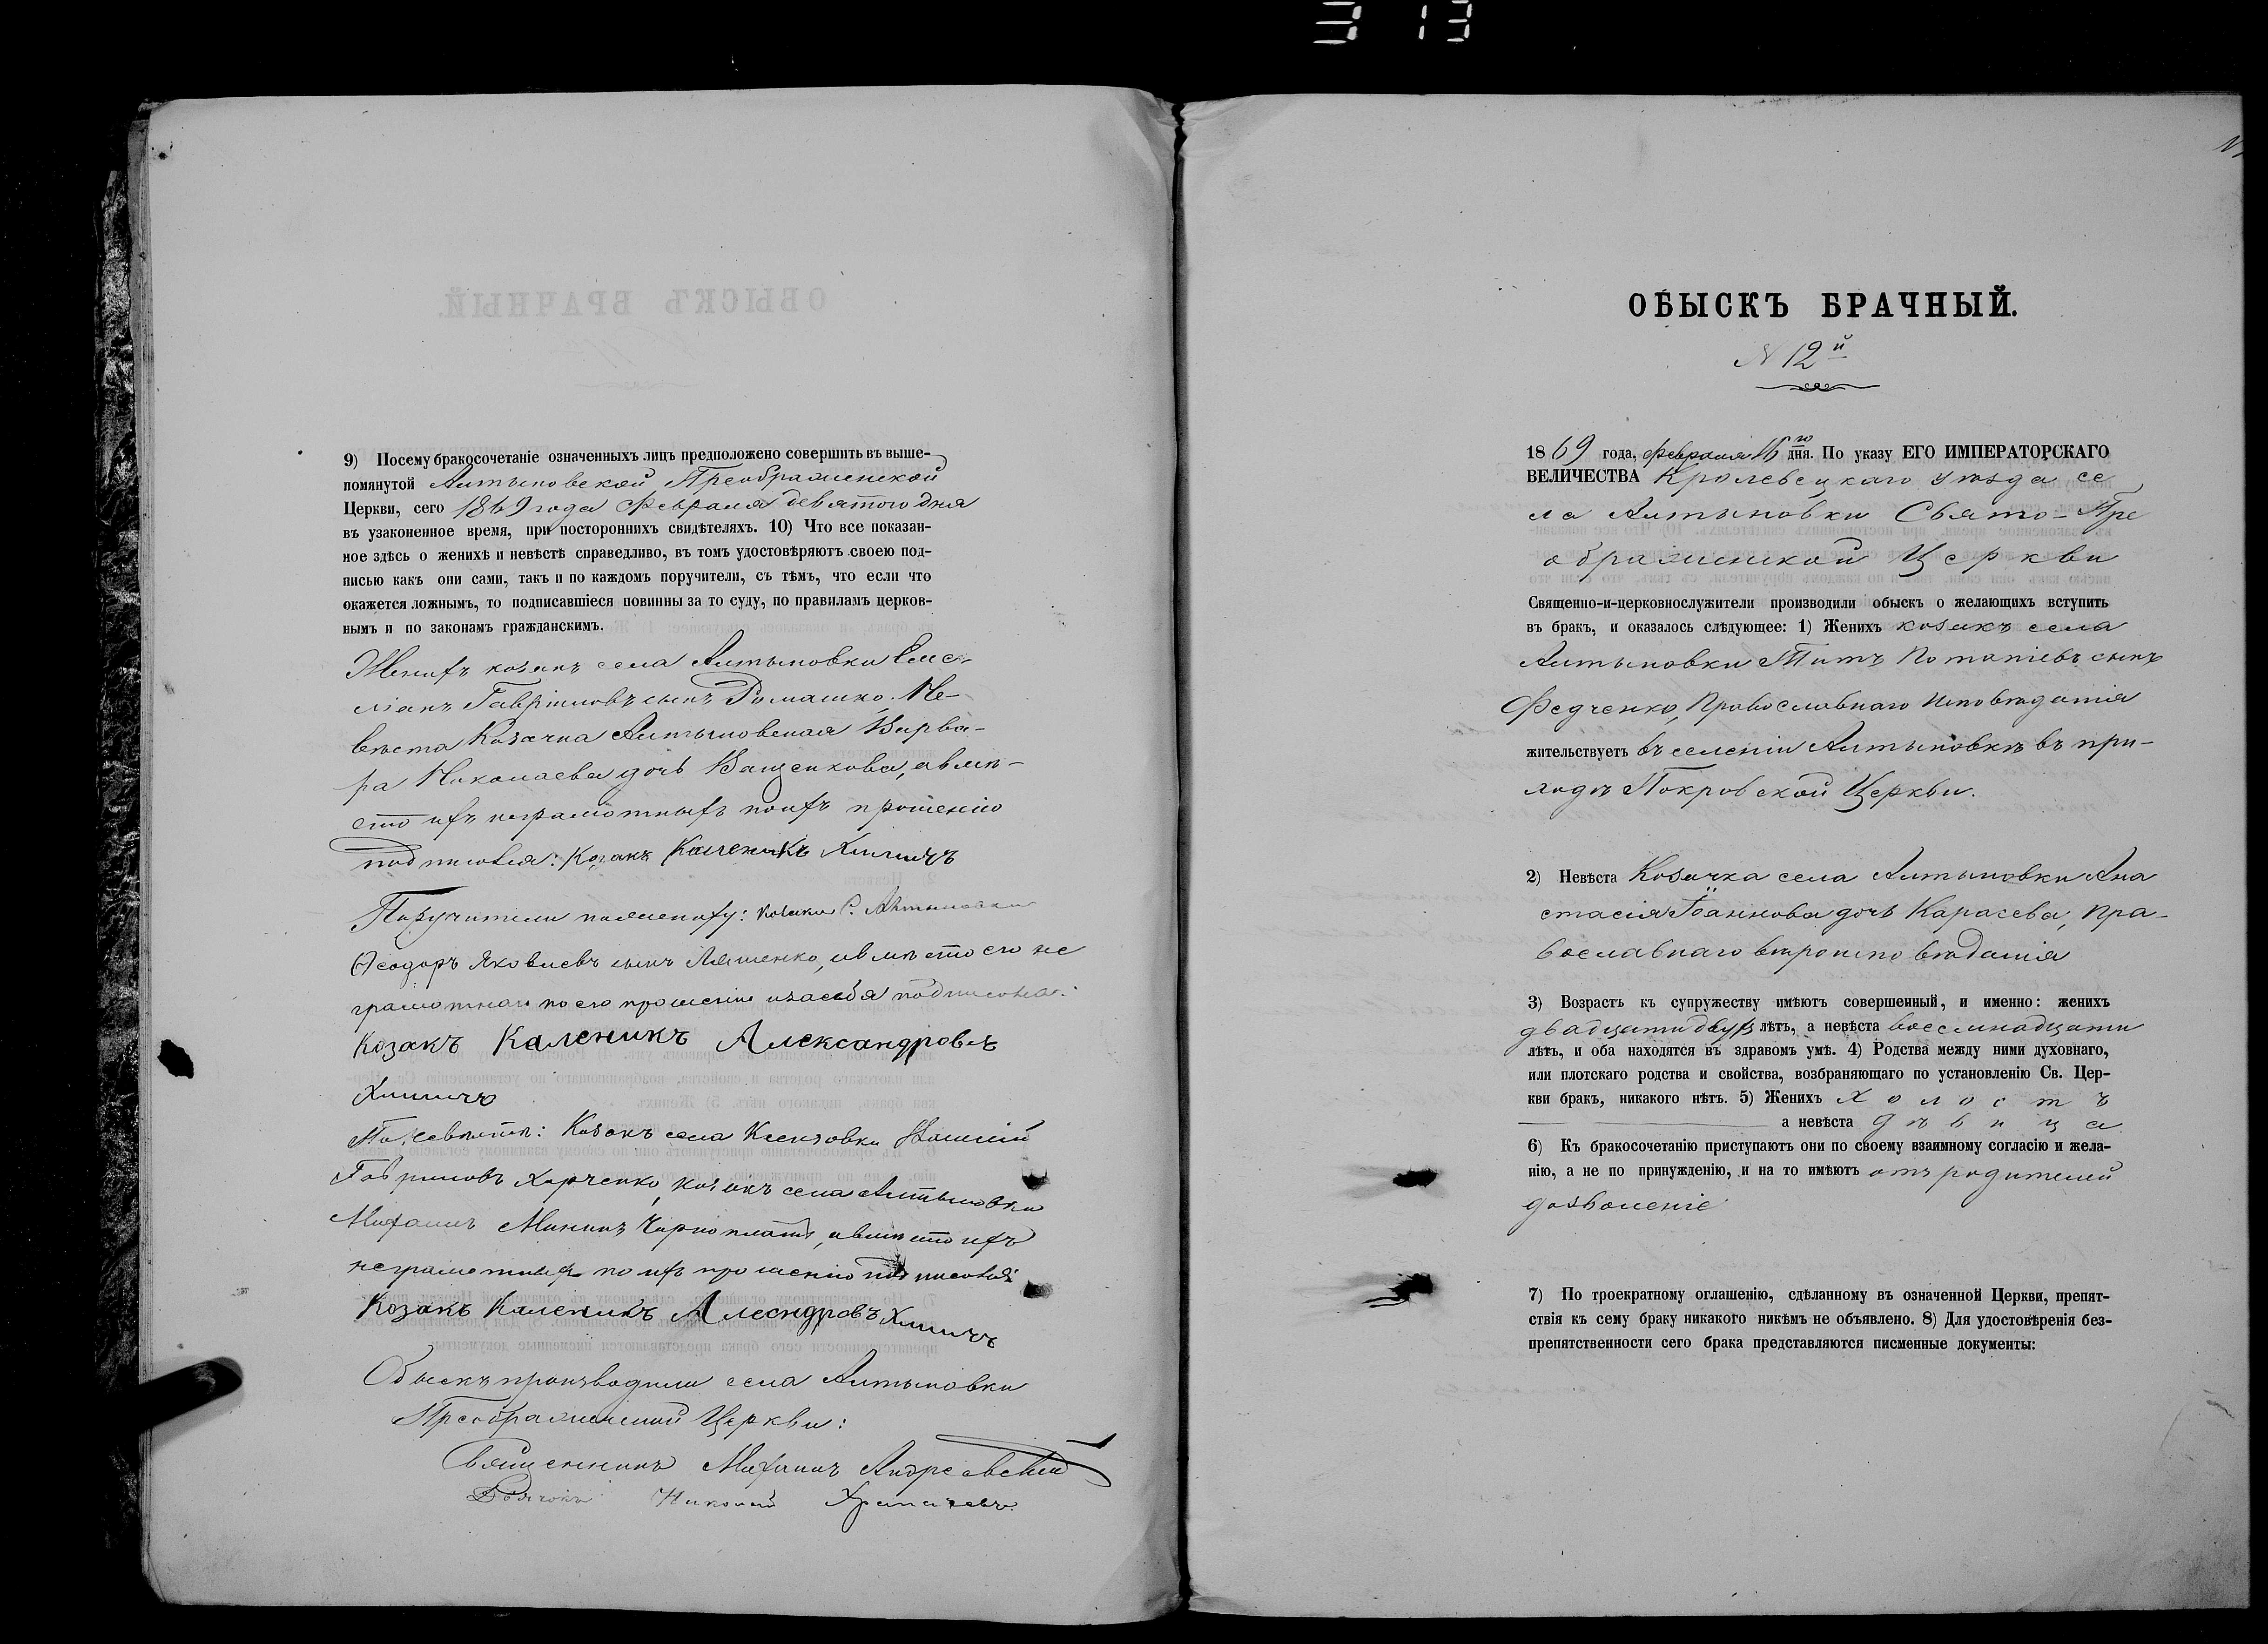 9) Посему бракосочетаніе означенныхъ лицъ предположено совершить въ выше-
помянутой Алтыновской Преображенской
Церкви, сего 1869 года Февраля девятого дня
въ узаконенное время, при постороннихъ свидѣтеляхъ. 10) Что все показан-
ное здѣсь о женихѣ и невѣстѣ справедливо, въ томъ удостовѣряютъ своею под-
писью какъ они сами, такъ и по каждомъ поручители, съ тѣмъ, что если что
окажется ложнымъ, то подписавшіеся повинны за то суду, по правиламъ церков-
нымъ и по законамъ гражданскимъ.
Женихъ козакъ села Алтыновки Еме-
ліанъ Гавріиловъ сынъ Ромашко, Не-
вѣста Козачка Алтыновская Варва-
ра Николаева дочь Ващенкова, а вмѣ-
сто ихъ неграмотныхъ по ихъ прошенію
подписался: Козакъ Каленикъ Химичъ
Поручители по жениху: козаки С. Алтыновки
Ѳеодоръ Яковлевъ сынъ Ляшенко, а вмѣсто его не
грамотнаго по его прошенію и за себя подписался:
Козакъ Каленикъ Александровъ
Химичъ
По невѣстѣ: Козакъ села
Гавриловъ Харченко, козакъ села Алтыновки
Михаилъ Мининъ а вмѣсто ихъ
неграмотныхъ по ихъ прошенію подписался
Козакъ Каленикъ Алесндровъ Химичъ
Обыскъ производили села Алтыновки
Преображенской Церкви:
Священникъ Михаилъ Андреевскій
Дьячокъ Николай
ОБЫСКЪ БРАЧНЫЙ.
N 12й
1869 года, Февраля 16го дня. По указу ЕГО ИМПЕРАТОРСКАГО
ВЕЛИЧЕСТВА Кролевецкаго уѣзда се
ла Алтыновки Свято-Пре
ображенской Церкви
Священно-и-церковнослужители производили обыскъ о желающихъ вступить
въ бракъ, и оказалось слѣдующее: 1) Женихъ козакъ села
Алтыновки Титъ Потапіевъ сынъ
Федченко, Православнаго Исповѣданія
жительствуетъ въ селеніи Алтыновкѣ въ при-
ходѣ Покровской Церкви.
2) Невѣста Козачка села Алтыновки Ана
стасія Іоаннова дочь Карасева, Пра-
вославнаго вѣроисповѣданія
3) Возрастъ къ супружеству имѣютъ совершенный, и именно: женихъ
двадцати двухъ лѣтъ, а невѣста восемнадцати
лѣтъ, и оба находятся въ здравомъ умѣ. 4) Родства между ними духовнаго,
или плотскаго родства и свойства, возбраняющаго по установленію Св. Цер-
кви бракъ, никакого нѣтъ. 5) Женихъ холостъ
а невѣста дѣвица
6) Къ бракосочетанію приступаютъ они по своему взаимному согласію и жела-
нію, а не по принужденію, и на то имѣютъ отъ родителей
дозволеніе
7) По троекратному оглашенію, сдѣланному въ означенной Церкви, препят-
ствія къ сему браку никакого никѣмъ не объявлено. 8) Для удостовѣренія без-
препятственности сего брака представляются писменные документы: